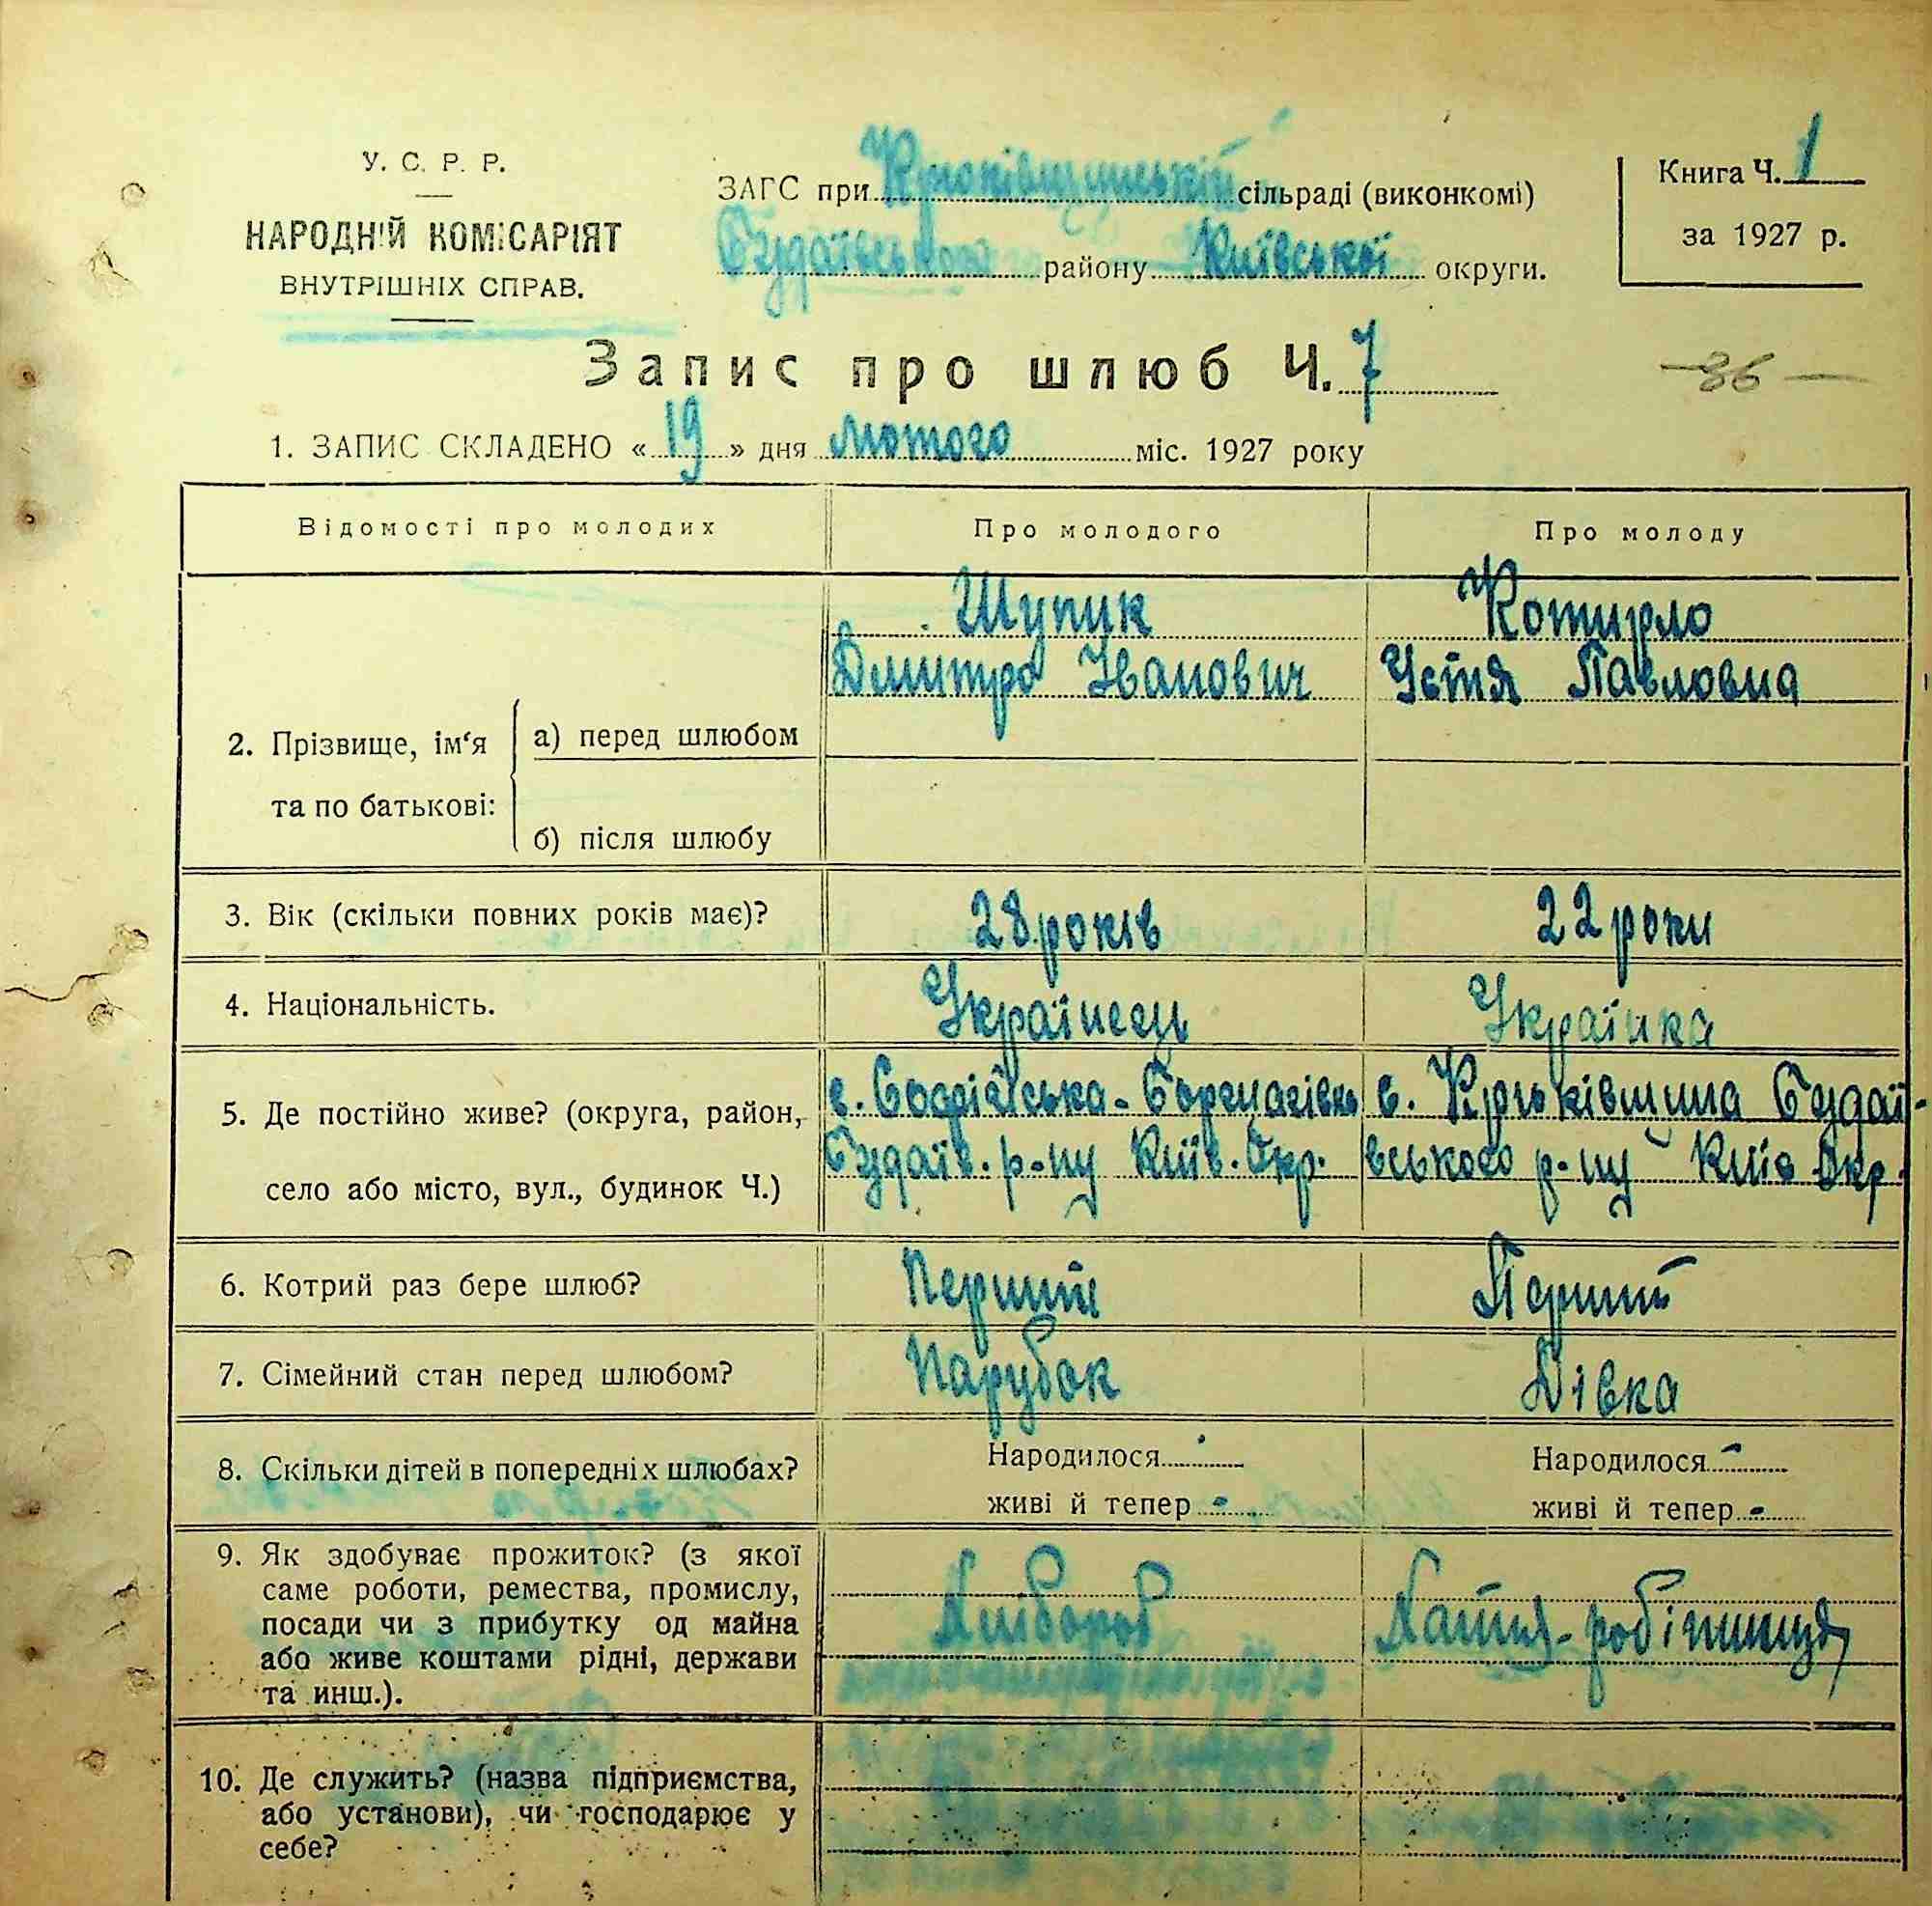 У. С. Р. Р.
НАРОДНІЙ КОМІСАРІЯТ
ВНУТРІШНІХ СПРАВ.
ЗАГС при Крюківщинській сільраді (виконкомі)
Будаївського району Київської округи.
Книга Ч. 1
за 1927 р.
Запис про шлюб Ч. 7
— 36 —
1. ЗАПИС СКЛАДЕНО « 19 » дня лютого міс. 1927 року
Відомості про молодих Про молодого Про молоду
2. Прізвище, ім‘я та по батькові:
а) перед шлюбом
Шупик
Дмитро Іванович
Котирло
Устя Павловна
б) після шлюбу
3. Вік (скільки повних років має)? 28 років 22 роки
4. Національність. Українець Українка
5. Де постійно живе? (округа, район,
село або місто, вул., будинок Ч.)
с. Софіївська-Борщагівка
Будаїв. р-ну Київ. Окр.
с. Крюківщина Будаї-
вського р-ну Київ Окр.
6. Котрий раз бере шлюб? Перший Перший
7. Сімейний стан перед шлюбом? Парубок Дівка
8. Скільки дітей в попередніх шлюбах?
Народилося -
живі й тепер -
Народилося -
живі й тепер -
9. Як здобуває прожиток? (з якої
саме роботи, ремества, промислу,
посади чи з прибутку од майна
або живе коштами рідні, держави
та инш.).
Хлібороб
Хатня-робітниця
10. Де служить? (назва підприємства,
або установи), чи господарює у
себе?